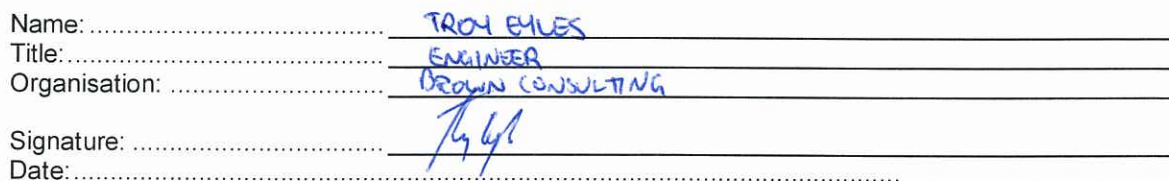 Name: ...................................... TROY EYLES
Title: .......................................... ENGINEER
Organisation: ............................ BROWN CONSULTING
Signature: .................................
Date: ....................................................................................................................